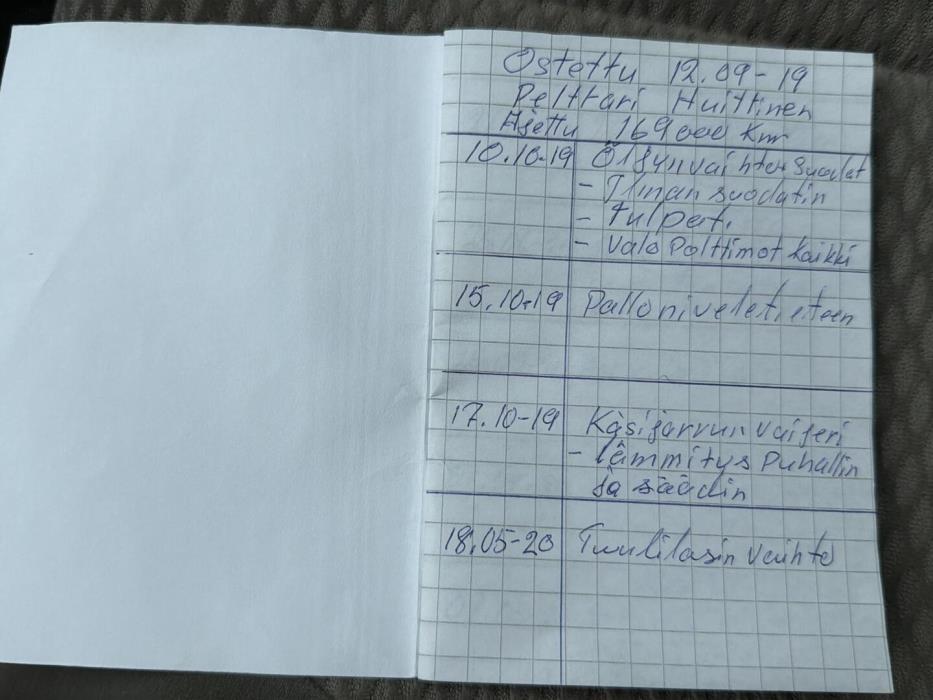 Ostettu 12.09-19
Pelttari Huittinen
Ajettu 169000 Km
10.10-19 Öljynvaihto+Suodat
- Ilman suodatin
- Tulpat.
- Valo Polttimot kaikki
15.10-19 Pallonivelet. eteen
17.10-19 Käsijarrun vaijeri
- lämmitys Puhallin
ja säädin
18.05-20 Tuulilasin vaihto